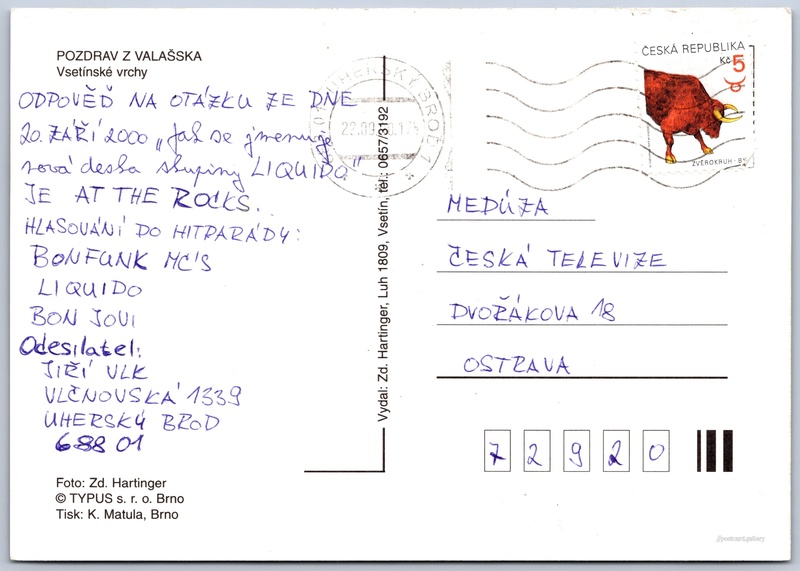 POZDRAV Z VALAŠSKA
Vsetínské vrchy
ODPOVĚĎ NA OTÁZKU ZE DNE
20. ZÁŘÍ 2000 „Jak se jmenuje
nová deska skupiny LIQUIDO"
JE AT THE ROCKS.
HLASOVÁNÍ DO HITPARÁDY:
BONFUNK MC'S
LIQUIDO
BON JOVI
Odesilatel:
JIŘÍ VLK
VLČNOVSKÁ 1339
UHERSKÝ BROD
688 01
Foto: Zd. Hartinger
© TYPUS s. r. o. Brno
Tisk: K. Matula, Brno
Vydal: Zd. Hartinger, Luh 1809, Vsetín, tel.: 0657/3192
UHERSKÝ BROD 1
ČESKÁ REPUBLIKA
Kč 5
ZVĚROKRUH - BÝK
MEDÚZA
ČESKÁ TELEVIZE
DVOŘÁKOVA 18
OSTRAVA
7 2 9 2 0
//postcard.gallery